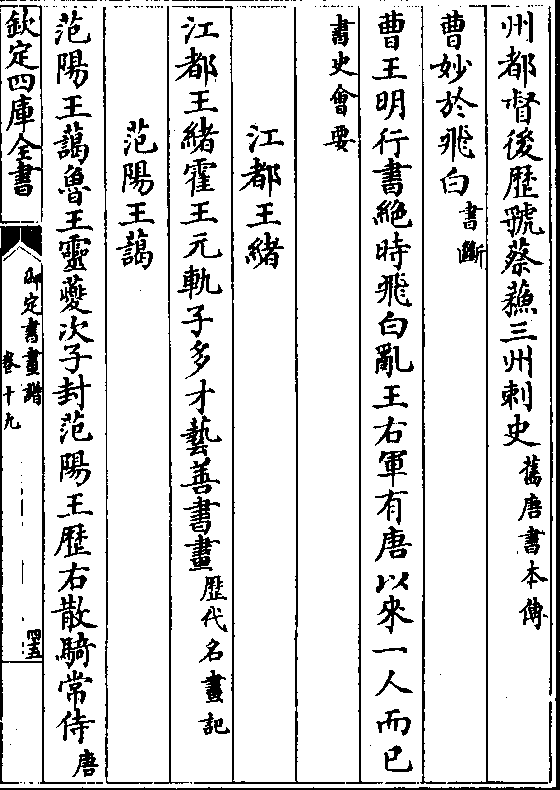 州都督後歷虢蔡蘓三州刺史舊唐書本傳
曹妙於飛白書斷
曹王明行書絶時飛白亂王右軍有唐以來一人而已
書史會要
江都王緒
江都王緒霍王元軌子多才藝善書畫歷代名畫記
范陽王藹
范陽王藹魯王靈夔次子封范陽王歷右散騎常侍唐
欽定四庫全書
御定書畫譜
卷十九
四五